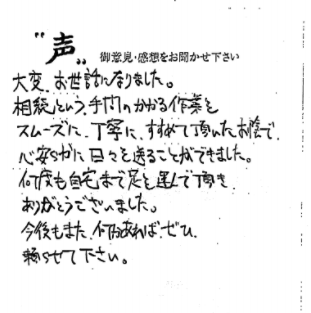 "声"
御意見・感想をお聞かせ下さい
大変、お世話になりました。
相続という、手間のかかる作業を
スムーズに、丁寧に、すすめて頂いたお陰で、
心安らかに日々を送ることができました。
何度も自宅まで足を運んで頂き
ありがとうございました。
今後もまた、何かあれば、ぜひ、
頼らせて下さい。